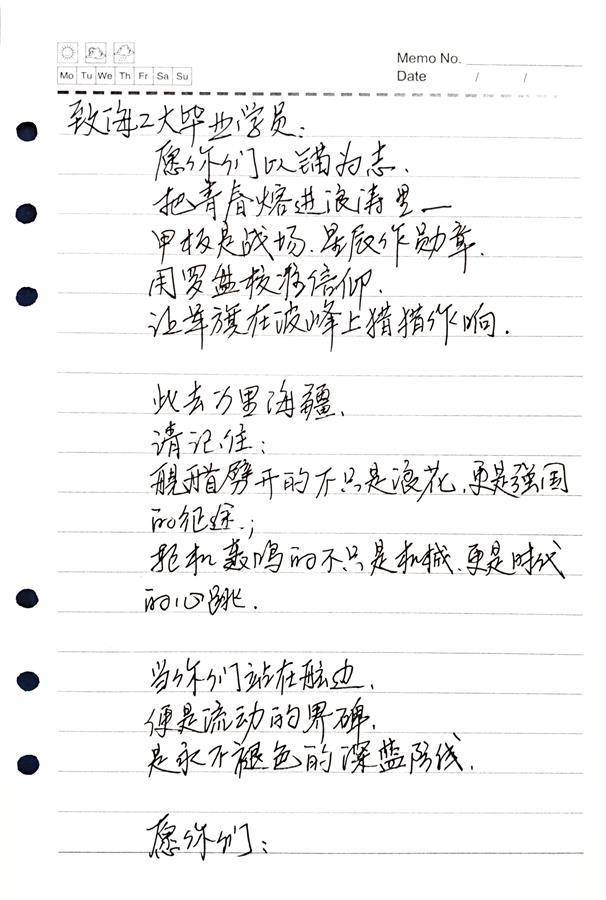 Memo No.
Mo Tu We Th Fr Sa Su
Date / /
致海工大毕业学员:
愿你们以锚为志.
把青春熔进浪涛里—
甲板是战场.星辰作勋章.
用罗盘校准信仰.
让军旗在波峰上猎猎作响.
此去万里海疆.
请记住:
舰艏劈开的不只是浪花.更是强国
的征途.;
轮机轰鸣的不只是机械.更是时代
的心跳.
当你们站在舷边.
便是流动的界碑.
是永不褪色的深蓝防线.
愿你们: